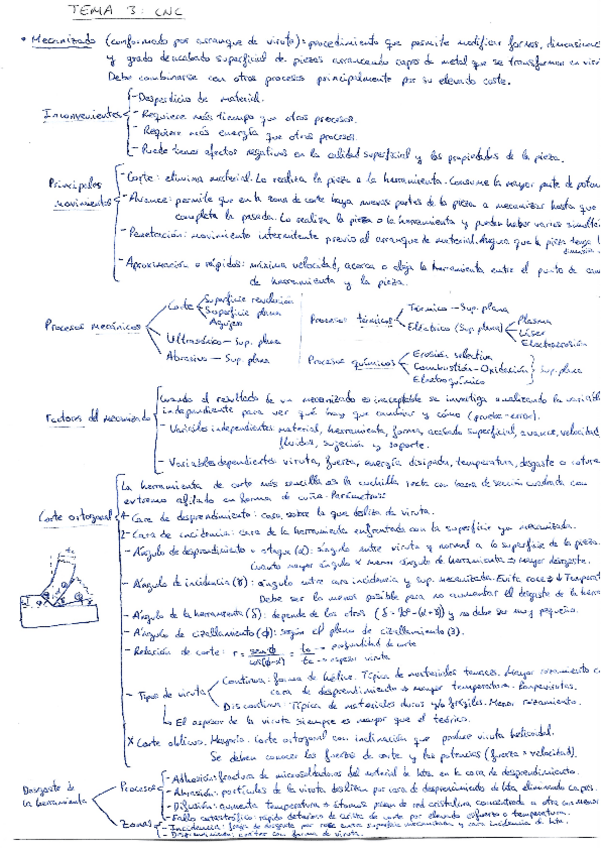 TEMA 3: CNC
• Mecanizado (conformado por arranque de viruta): procedimiento que permite modificar formas, dimensiones
y grado de acabado superficial de piezas arrancando capas de metal que se transforman en
Debe combinarse con otros procesos principalmente por su elevado coste.
- Desperdicio de material.
Inconvenientes - Requiere más tiempo que otros procesos.
- Requiere más energía que otros procesos.
- Puede tener efectos negativos en la calidad superficial y las propiedades de la pieza.
Principales movimientos
- Corte: elimina material. Lo realiza la pieza o la herramienta. Consume la mayor parte de
- Avance: permite que en la zona de corte haya nuevas partes de la pieza a mecanizar hasta que
completa la pasada. Lo realiza la pieza o la herramienta y pueden haber varios
- Penetración: movimiento intermitente previo al arranque de material. que la pieza tenga
- Aproximación o rápidos: máxima velocidad, acerca o aleja la herramienta entre el punto de
de herramienta y la pieza.
Procesos mecánicos
Corte
Superficie revolución
Superficie plana
Agujero
Ultrasónico - Sup. plana
Abrasivo - Sup. plana
Procesos térmicos
Térmico - Sup. plana
Eléctrico (Sup. plana)
Plasma
Láser
Electroerosión
Procesos químicos
Erosión selectiva
Combustión - Oxidación
Electroquímico
Sup. plana
Factores del mecanizado
Cuando el resultado de un mecanizado es inaceptable se investiga analizando la variable
independiente para ver qué hay que cambiar y cómo (prueba-error).
- Variables independientes: material, herramienta, forma, acabado superficial, avance, velocidad,
fluidos, sujeción y soporte.
- Variables dependientes: viruta, fuerza, energía disipada, temperatura, desgaste o rotura
Corte ortogonal
La herramienta de corte más sencilla es la cuchilla recta con barra de sección cuadrada con
extremo afilado en forma de cuña. Parámetros:
1- Cara de desprendimiento: cara sobre la que desliza la viruta.
2- Cara de incidencia: cara de la herramienta enfrentada con la superficie ya mecanizada.
- Ángulo de desprendimiento o ataque (α): ángulo entre viruta y normal a la superficie de la pieza.
Cuanto mayor ángulo α menor ángulo de herramienta → mayor desgaste.
- Ángulo de incidencia (γ): ángulo entre cara incidencia y sup. mecanizada. Evita roces
Debe ser lo menor posible para no aumentar el desgaste de la
- Ángulo de la herramienta (δ): depende de los otros y no debe ser muy pequeño.
- Ángulo de cizallamiento (φ): según el plano de cizallamiento (3).
- Relación de corte: r = senφ / cos(φ-α) → profundidad de corte
→ espesor viruta
- Tipos de viruta
Continua: forma de hélice. Típica de materiales tenaces. Mayor rozamiento
cara de desprendimiento → mayor temperatura.
Discontinua: Típica de materiales duros y/o frágiles. Menor rozamiento.
→ El espesor de la viruta siempre es mayor que el teórico.
X Corte oblicuo. Mayoría. Corte ortogonal con inclinación que produce viruta helicoidal.
Se deben conocer las fuerzas de corte y las potencias (fuerza × velocidad).
Desgaste de la herramienta
Procesos
- Adhesión: fractura de microsoldaduras del material de hta. en la cara de desprendimiento.
- Abrasión: partículas de la viruta deslizan por cara de desprendimiento de hta. eliminando capas.
- Difusión: aumenta temperatura → átomos pasan de red cristalina concentrada a otra con menor
- Fallo catastrófico: rápido deterioro de arista de corte por elevado esfuerzo o temperatura.
Zonas
- Incidencia: franja de desgaste por roce entre superficie mecanizada y cara incidencia de hta.
- Desprendimiento: cráter con forma de viruta.